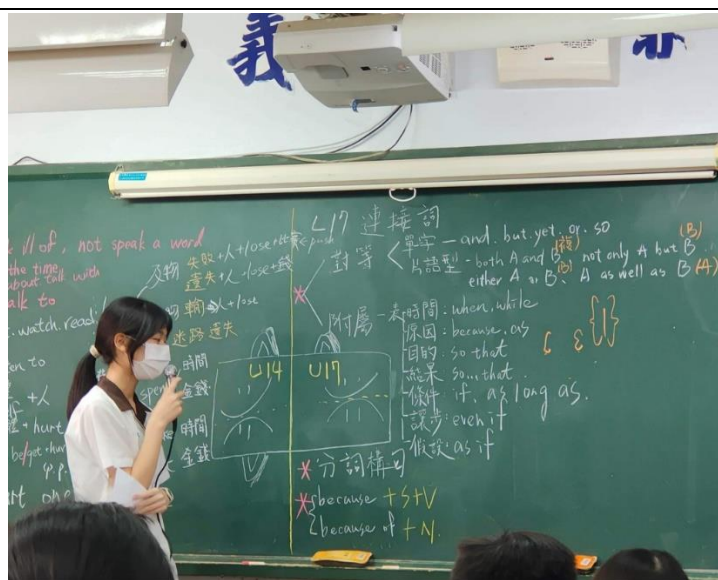 義
ill of, not speak a word
the time
about talk with
talk to
watch. reach
及物
失敗+人+lose+
遺失+人+lose+錢
輸 人+lose
迷路 遺失
時間
金錢
時間
金錢
+人
+hurt
be/get+hurt
p.p.
L17 連接詞
對等
單字 - and. but. yet. or. so
片語型 - both A and B (複) not only A but B (B)
either A or B (B)、A as well as B (A)
附屬 - 表時間: when, while
原因: because, as
目的: so that
結果: so...that
條件: if. as long as.
讓步: even if
假設: as if
U14
U17
*分詞構句
*because +S+V
because of +N.